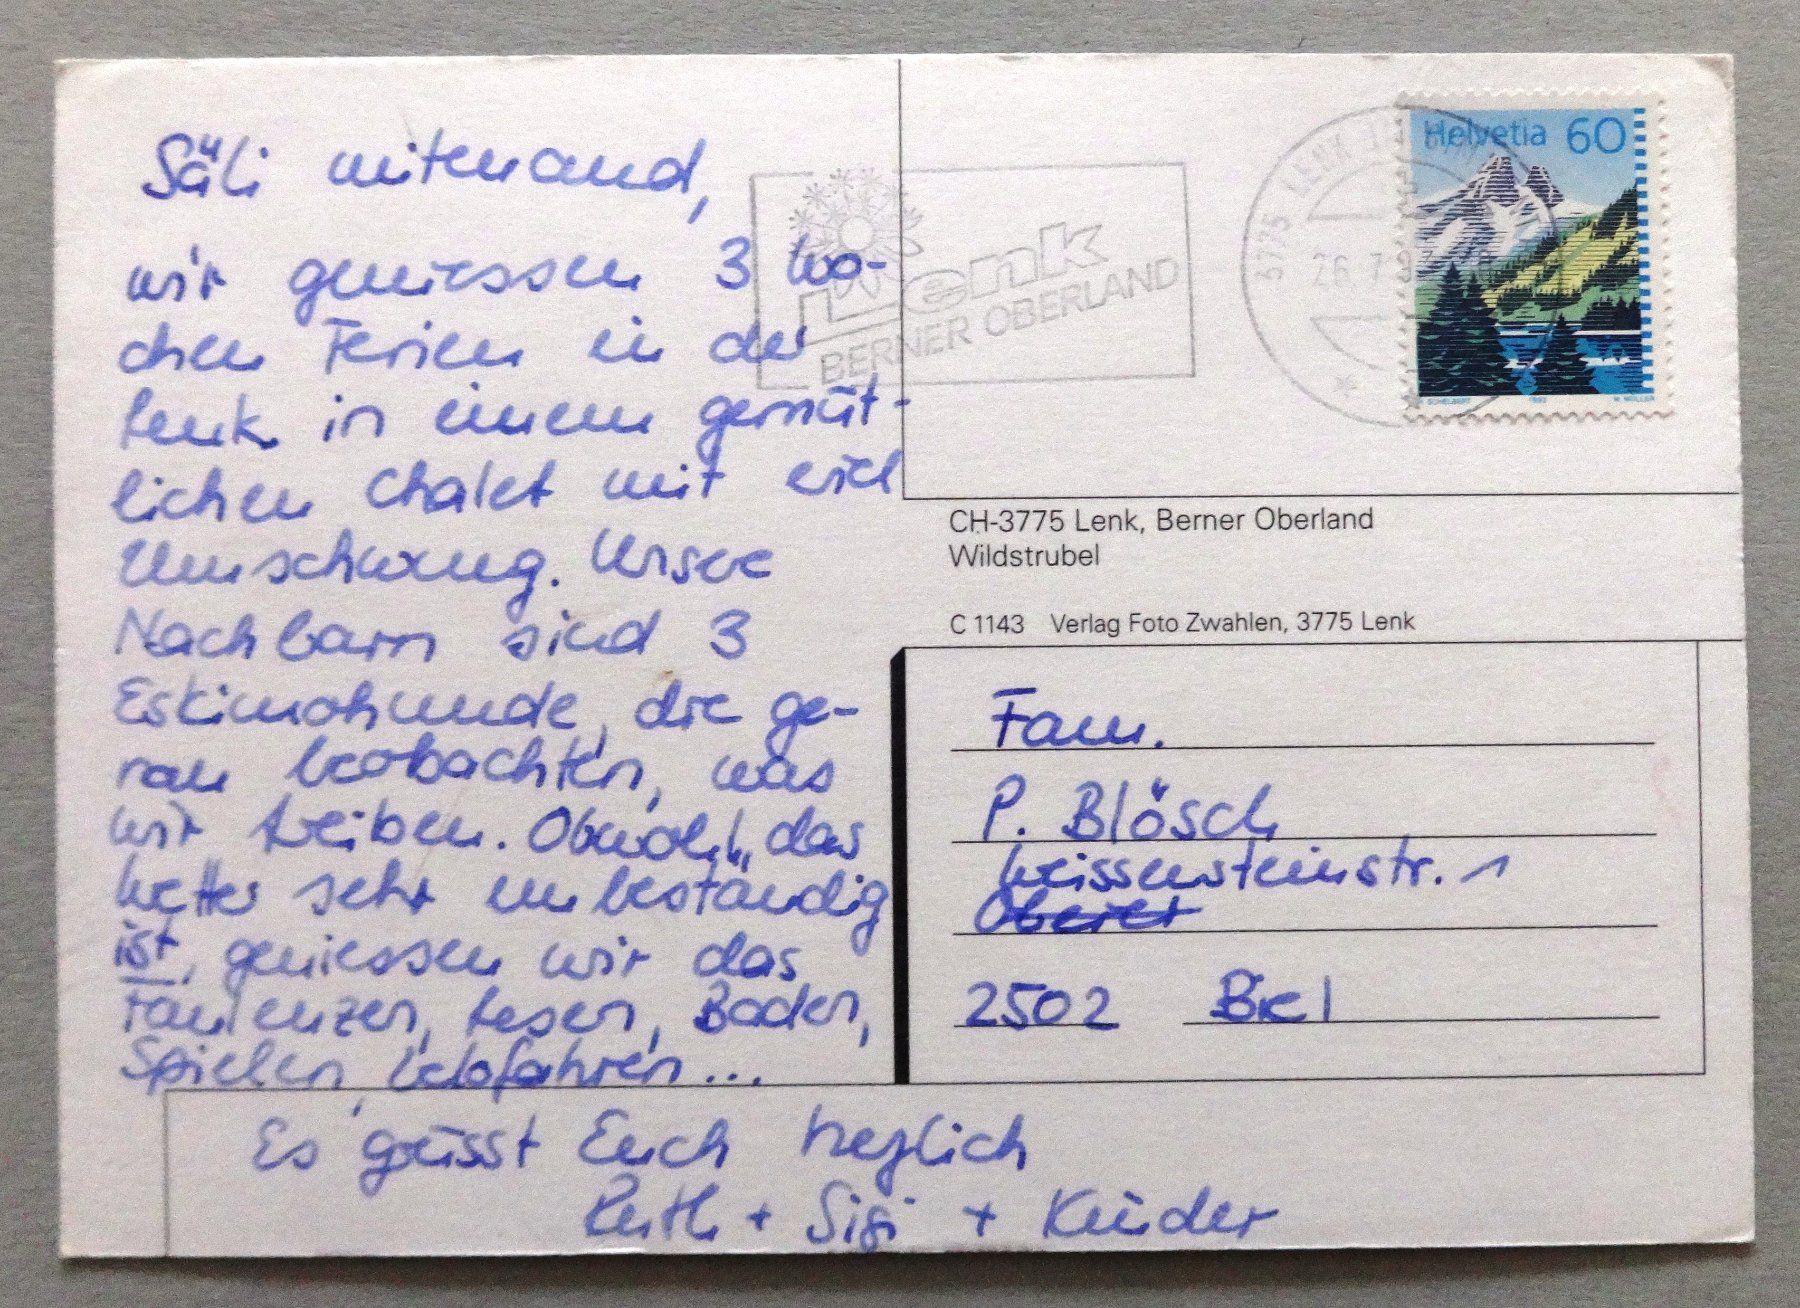 Säli mitenand,
wir geniessen 3 Wo-
chen Ferien in der
Lenk in einem gemüt-
lichen Chalet mit viel
Umschwung. Unsere
Nachbarn sind 3
Eskimohunde, die ge-
nau beobachten, was
wir treiben. Obwohl das
Wetter sehr unbeständig
ist, geniessen wir das
Faulenzen, Lesen, Baden,
Spielen, Velofahren...
Es grüsst Euch herzlich
Ruth + Sigi + Kinder
Lenk
BERNER OBERLAND
3775 LENK
26.7.9
Helvetia 60
1992
CH-3775 Lenk, Berner Oberland
Wildstrubel
C 1143 Verlag Foto Zwahlen, 3775 Lenk
Fam.
P. Blösch
Weissensteinstr. 1
2502 Biel